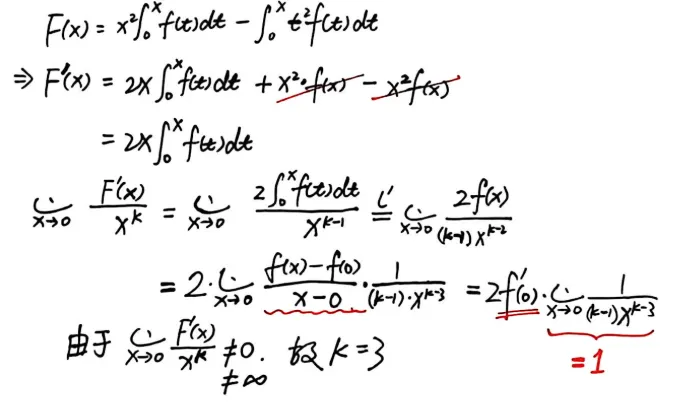 F(x) = x²∫₀ˣ f(t)dt − ∫₀ˣ t²f(t)dt
⇒ F'(x) = 2x∫₀ˣ f(t)dt + x²·f(x) − x²f(x)
= 2x∫₀ˣ f(t)dt
lim_{x→0} F'(x)/x^k = lim_{x→0} 2∫₀ˣ f(t)dt / x^{k-1} =^{L'} lim_{x→0} 2f(x)/((k-1)x^{k-2})
= 2·lim_{x→0} (f(x)−f(0))/(x−0) · 1/((k-1)·x^{k-3}) = 2f'(0)·lim_{x→0} 1/((k-1)x^{k-3})
由于 lim_{x→0} F'(x)/x^k ≠0. 故 k=3
≠∞
=1